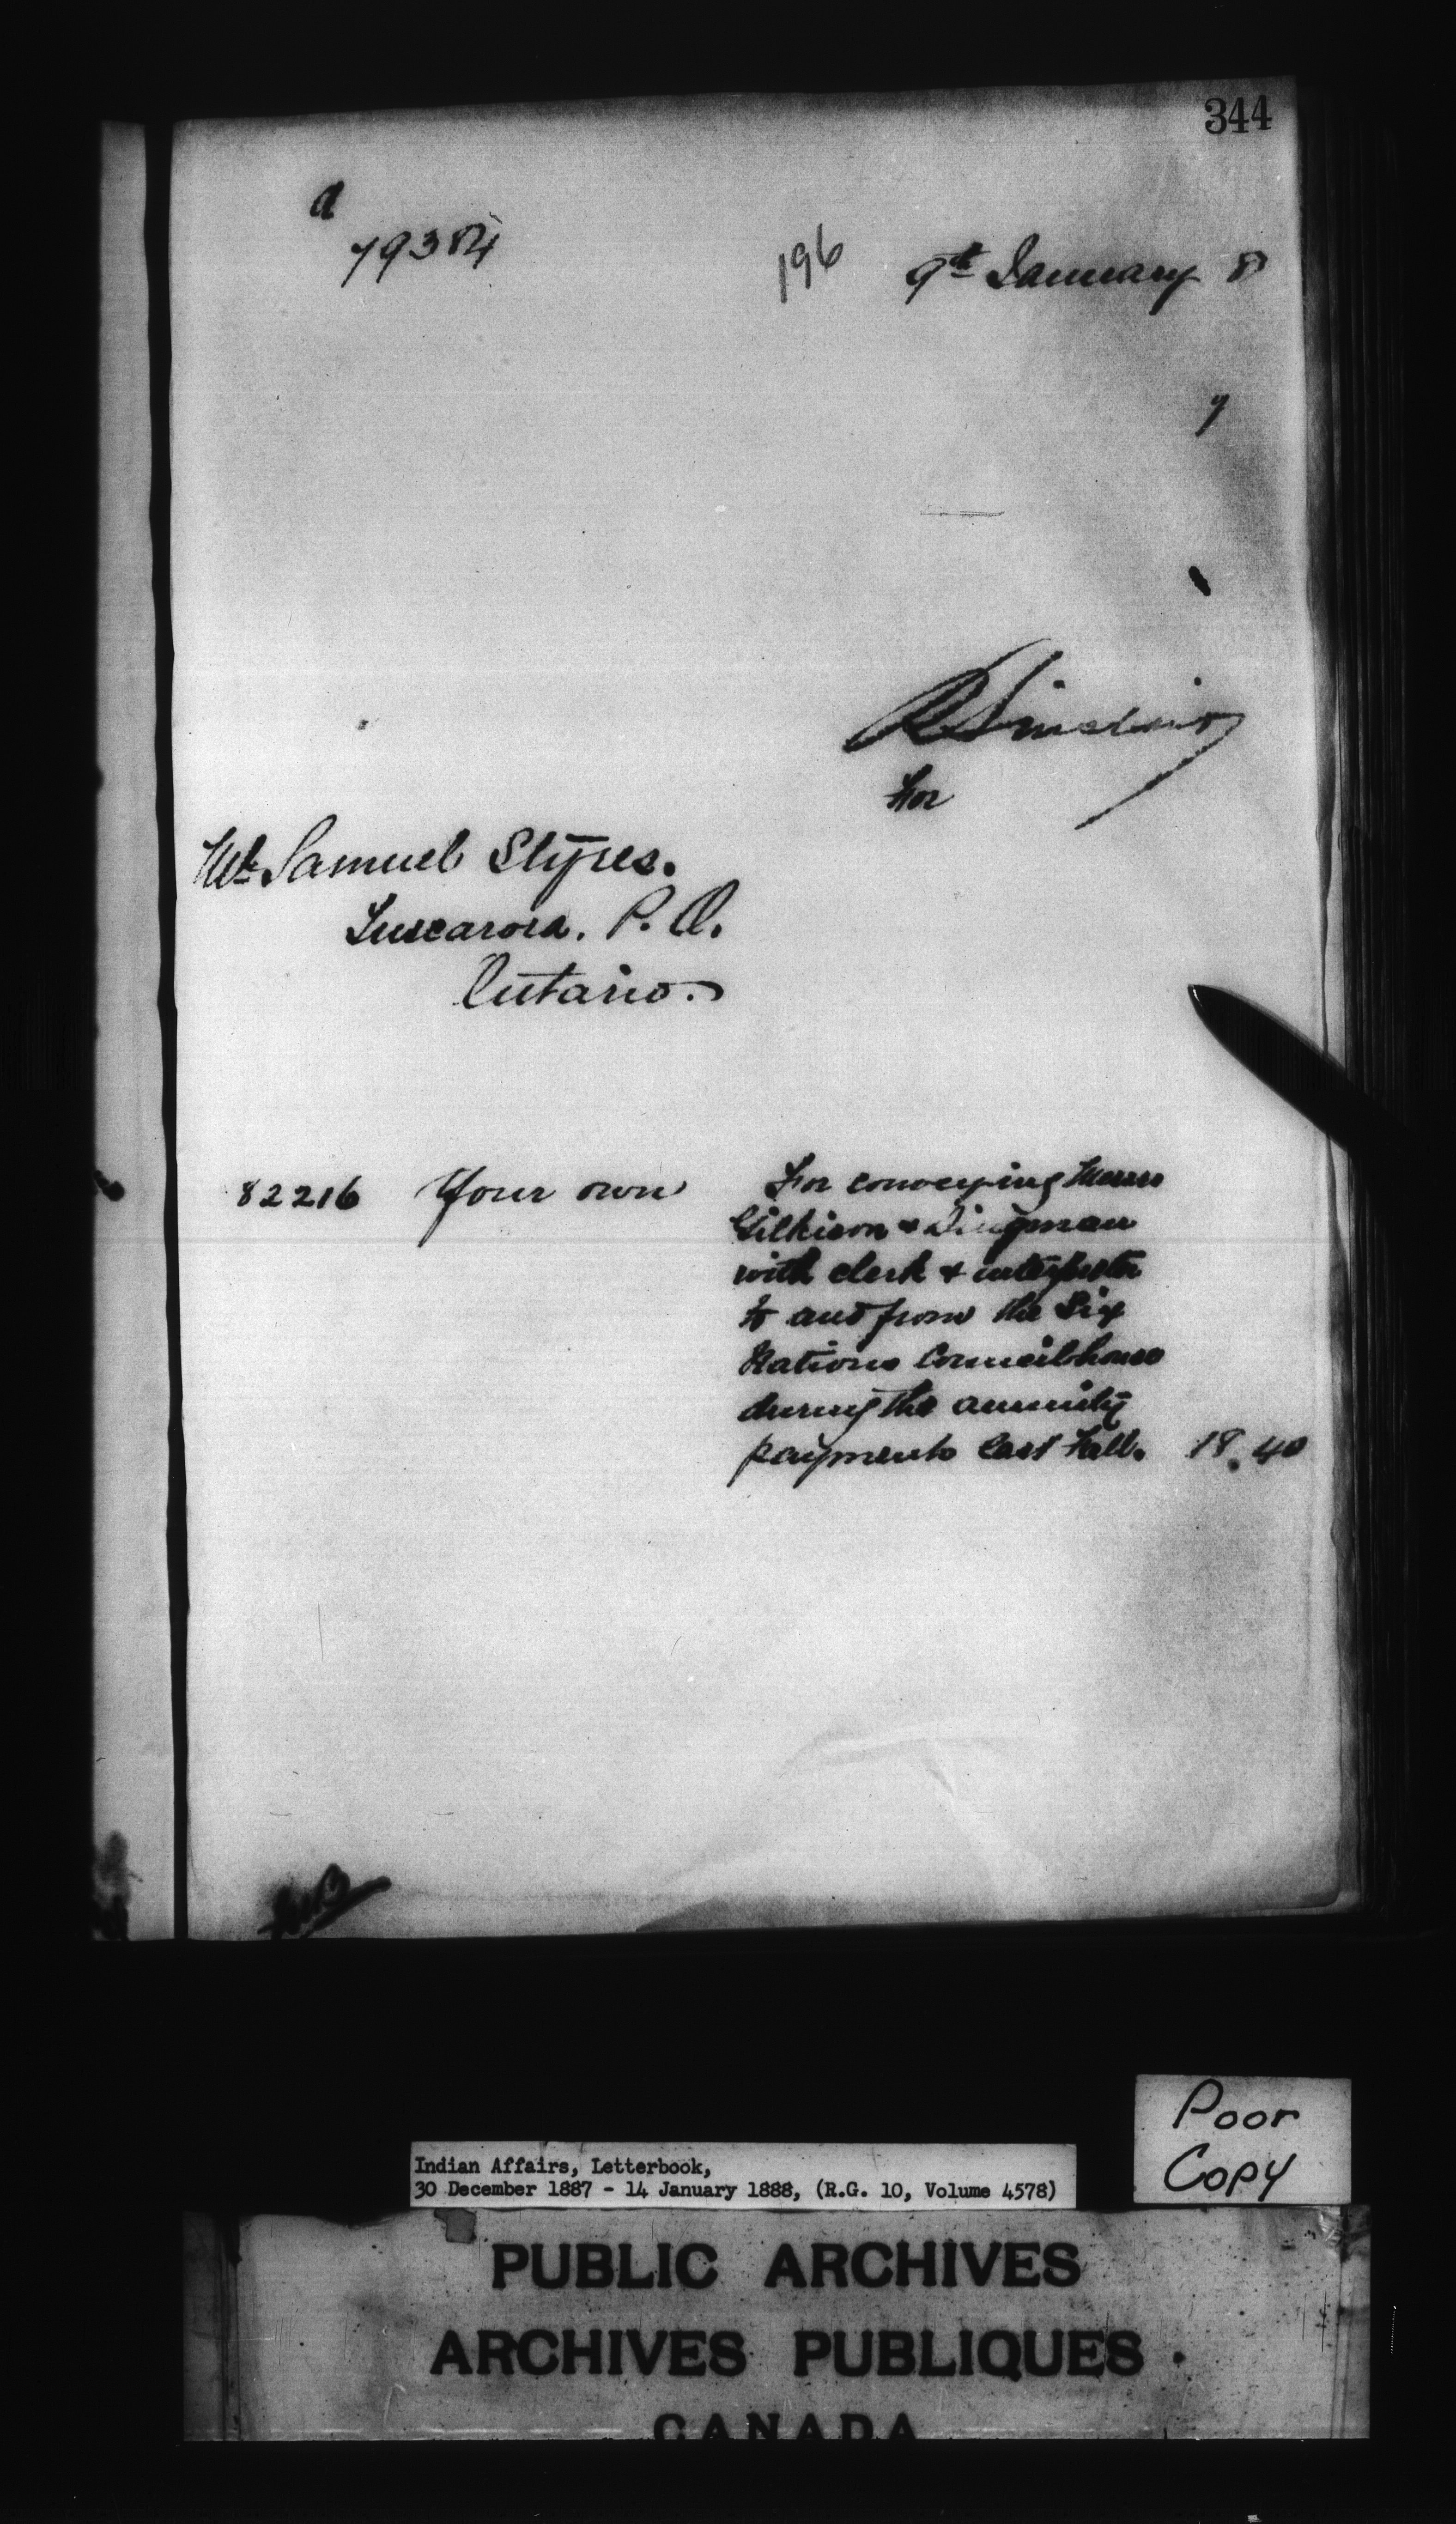 344
a
79384
196 9th January 8
7
R Sinclair
For
Mr Samuel Styres.
Tuscarora. P.O.
Ontario.
82216 Your own For conveying Messrs
Gilkison & Dingman
with clerk & interpreter
to and from the Six
Nations Council house
during the annuity
payments last Fall. 18.40
Poor
Copy
Indian Affairs, Letterbook,
30 December 1887 - 14 January 1888, (R.G. 10, Volume 4578)
PUBLIC ARCHIVES
ARCHIVES PUBLIQUES
CANADA